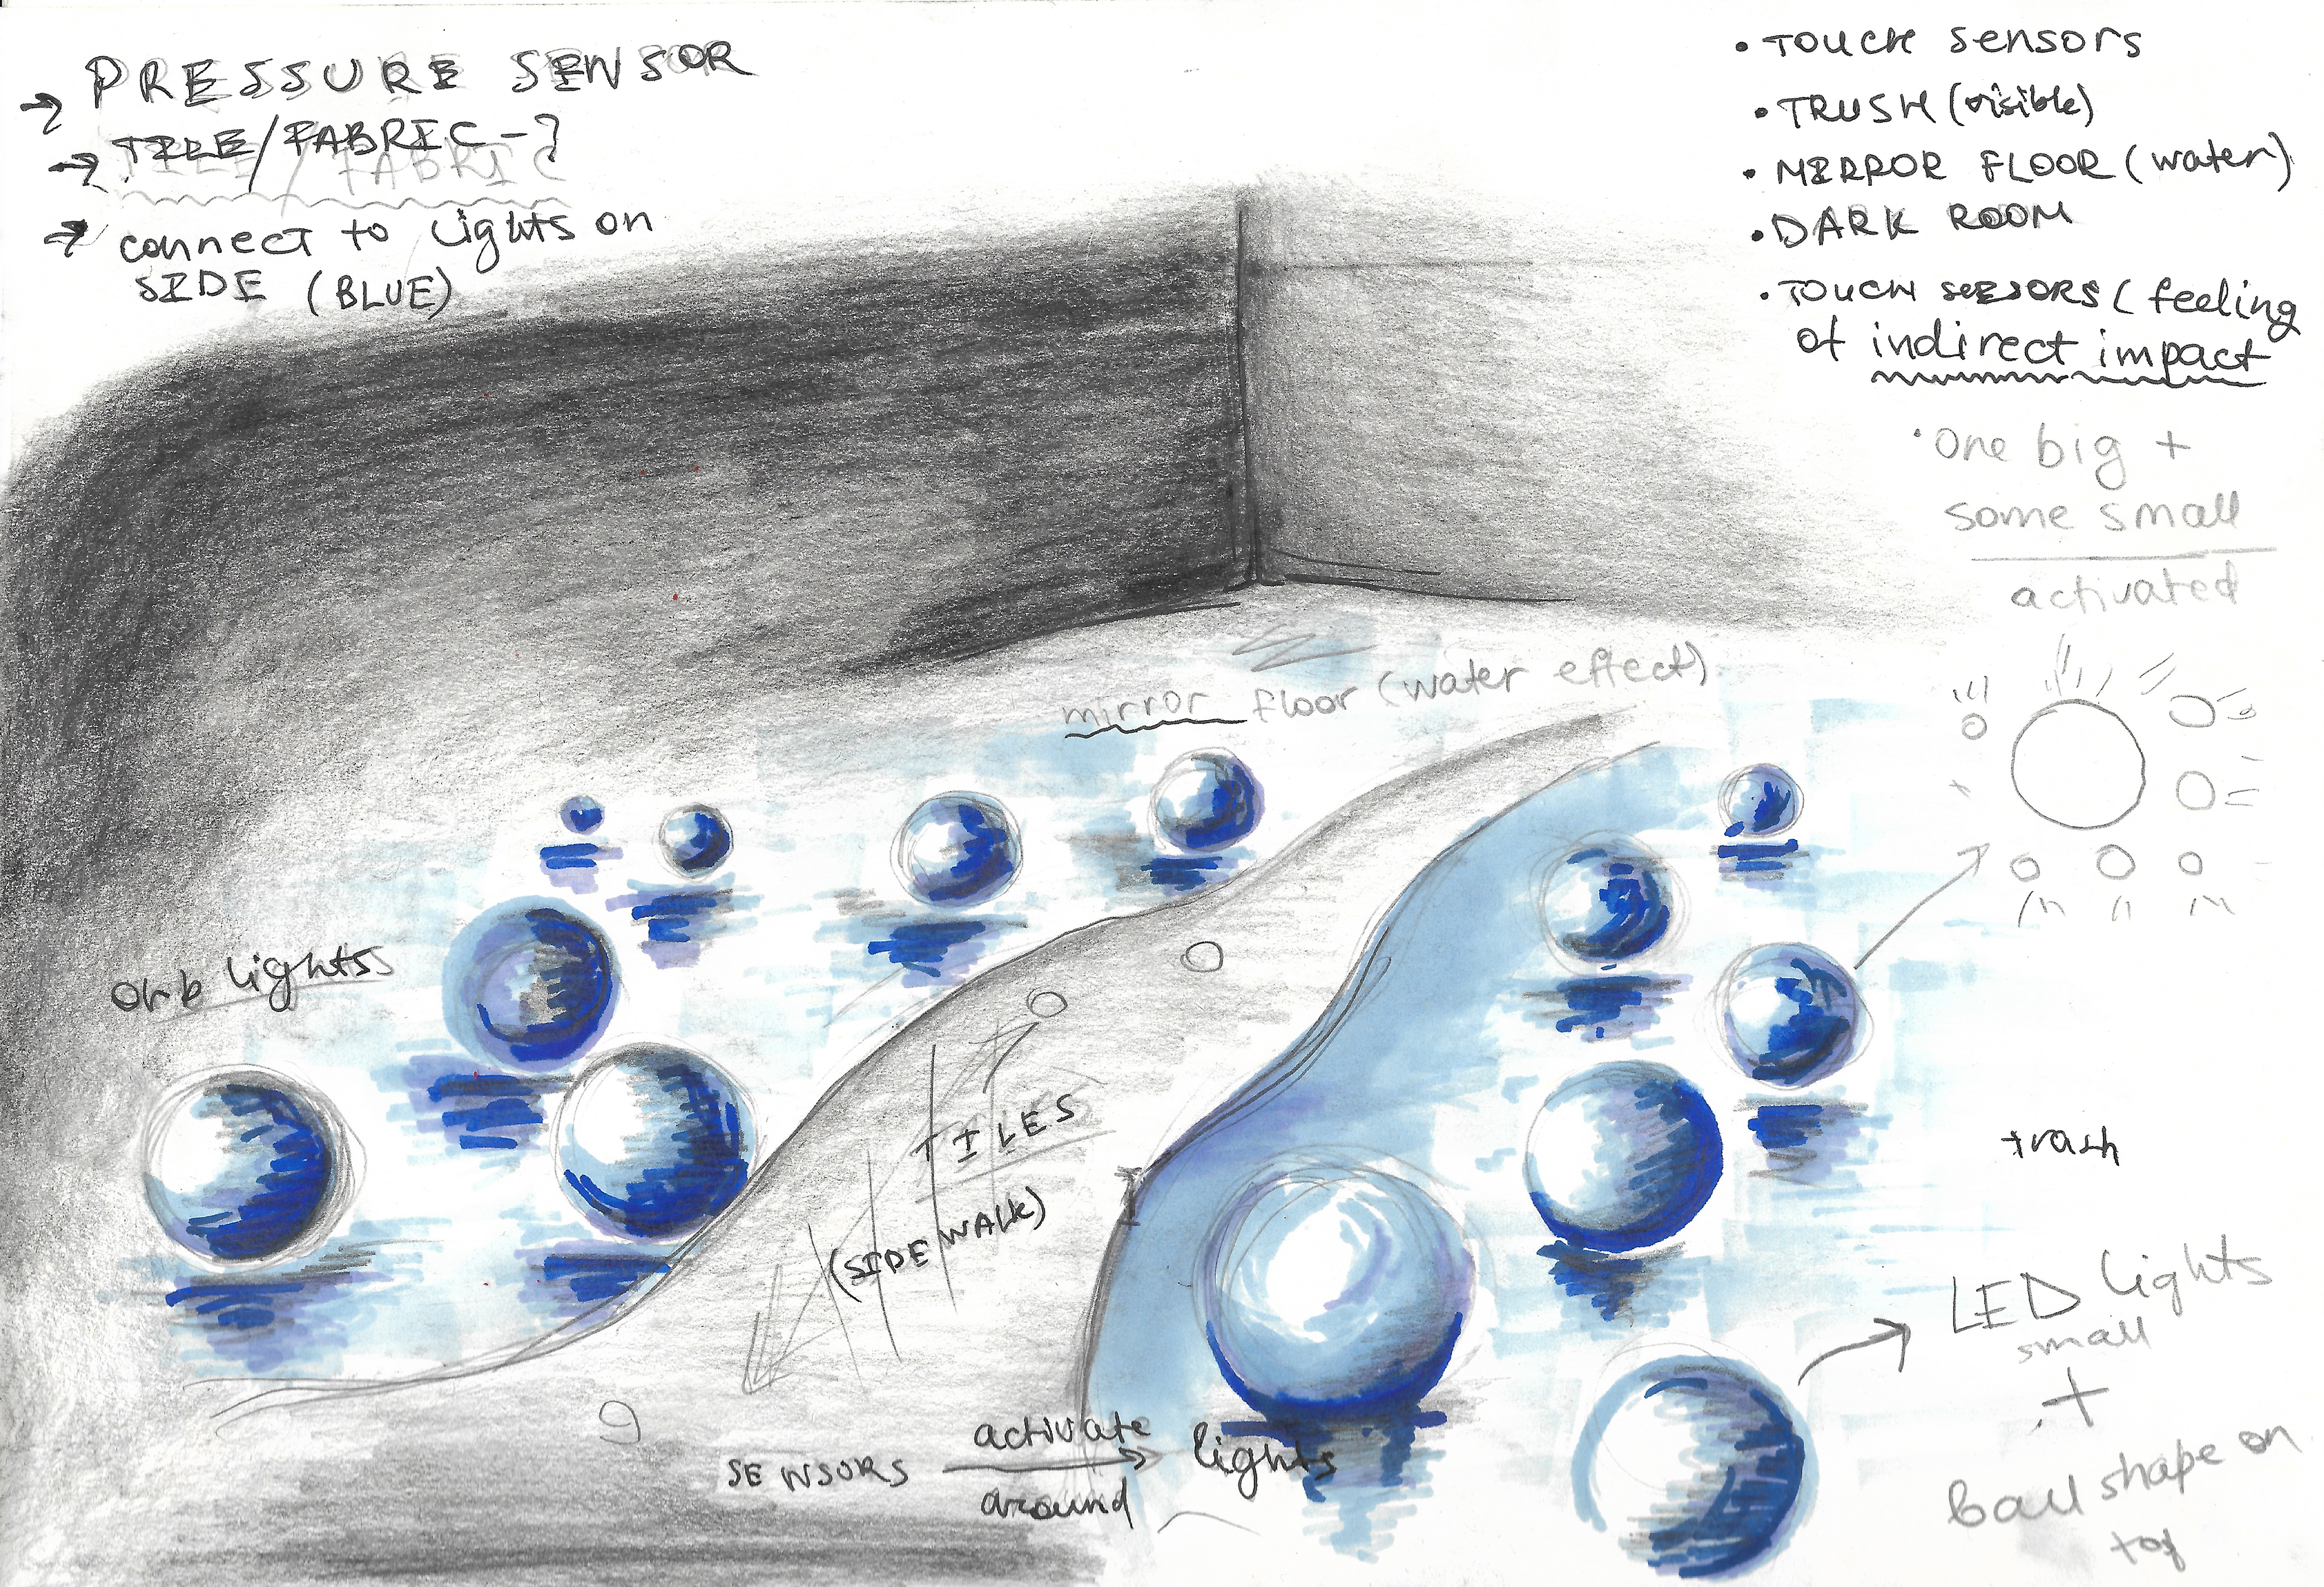 → PRESSURE SENSOR
→ TILE/FABRIC -?
TILE / FABRIC
→ connect to lights on
SIDE (BLUE)
• TOUCH sensors
• TRUSH (visible)
• MIRROR FLOOR (water)
• DARK ROOM
• TOUCH SESORS (feeling
of indirect impact
• One big +
some small
activated
mirror floor (water effect)
orb lightss
TILES
(SIDE WALK)
trash
LED lights
small
+
ball shape on
top
SENSORS activate → lights
around